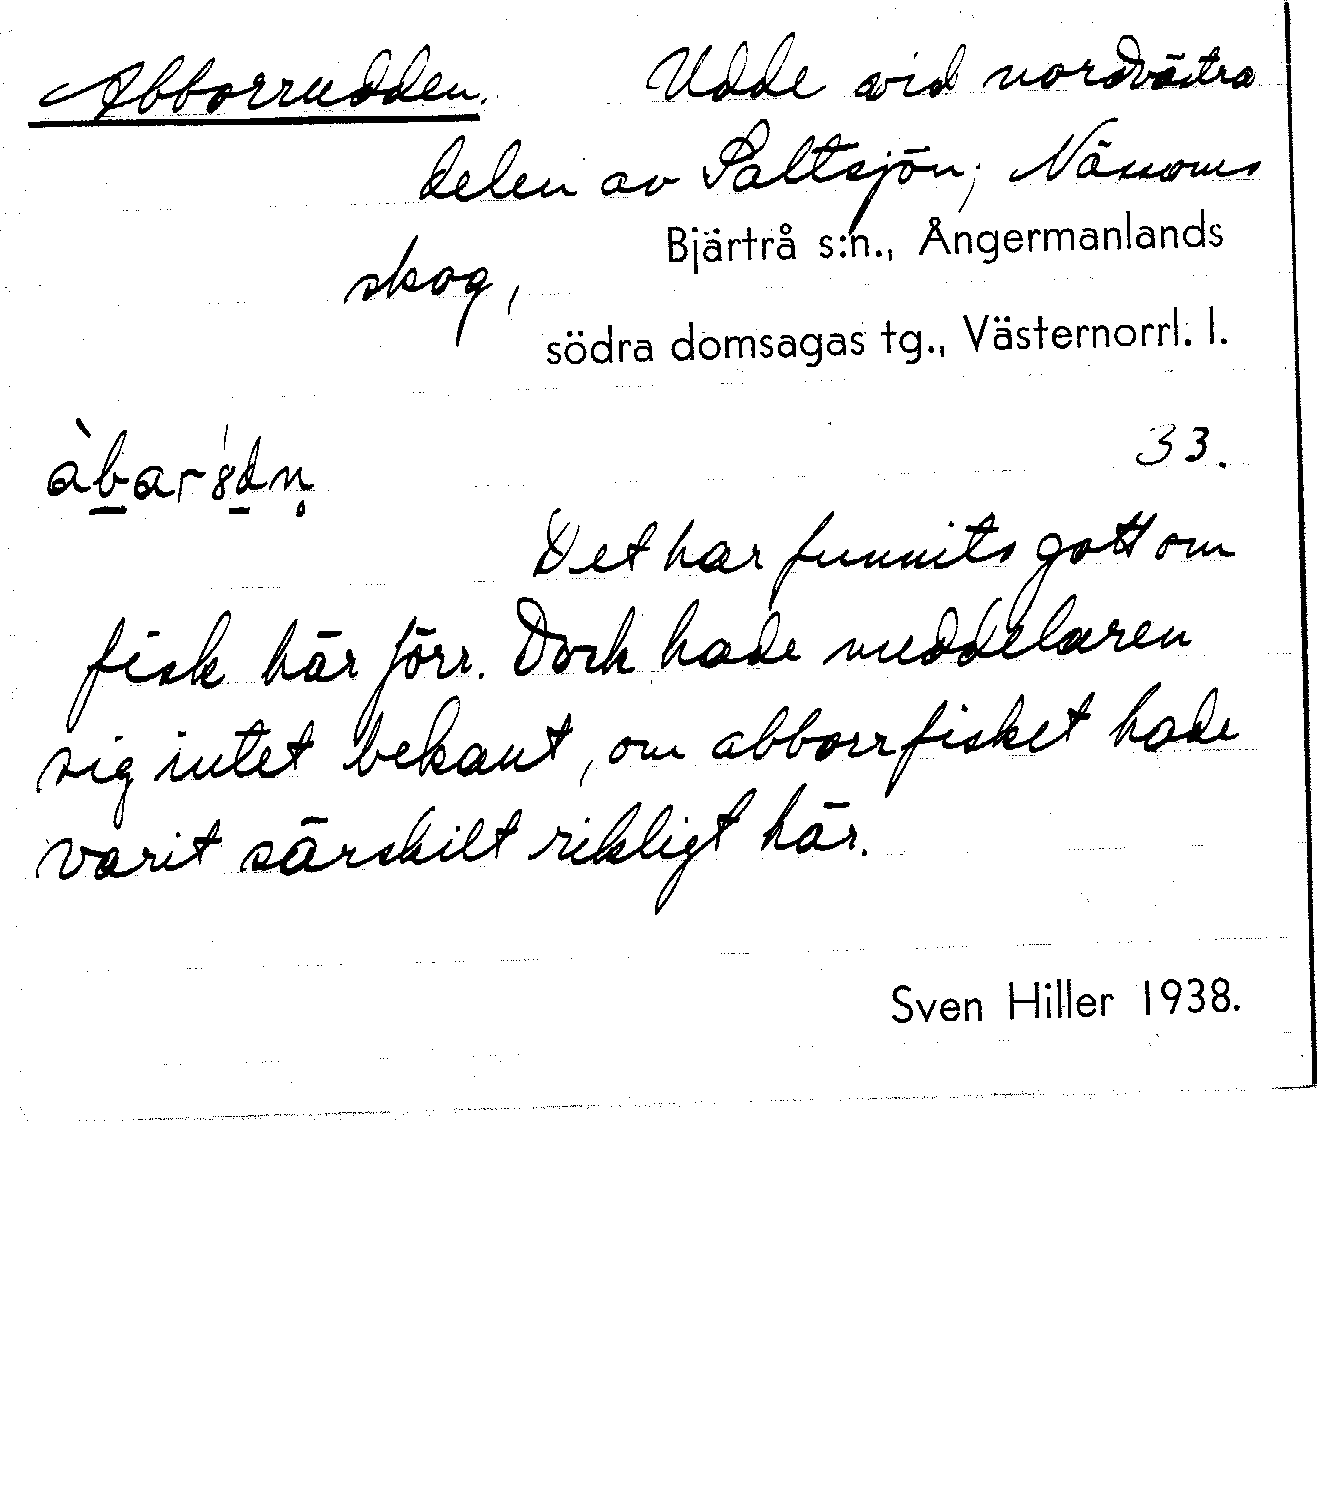 Abborrudden. Udde vid nordvästra
delen av Saltsjön; Nässoms
Bjärtrå s:n., Ångermanlands
skog,
södra domsagas tg., Västernorrl. l.
33.
Det har funnits gott om
fisk här förr. Dock hade meddelaren
sig intet bekant, om abborrfisket hade
varit särskilt rikligt här.
Sven Hiller 1938.